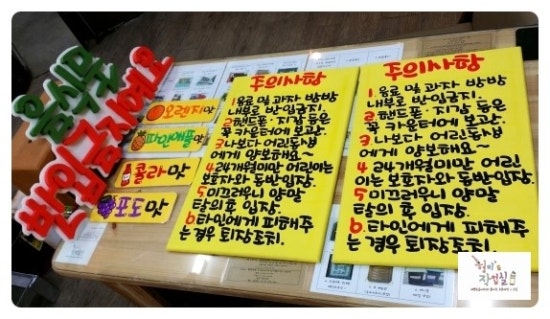 음식물
반입금지에요
오렌지맛
파인애플맛
콜라 맛
포도 맛
주의사항
1. 음료 및 과자 방방
내부로 반입금지.
2. 핸드폰·지갑 등은
꼭 카운터에 보관.
3. 나보다 어린동생
에게 양보해요~
4. 24개월미만 어린이는
보호자와 동반입장.
5. 미끄러우니 양말
탈의 후 입장.
6. 타인에게 피해주
는 경우 퇴장조치.
주의사항
1. 음료 및 과자 방방
내부로 반입금지.
2. 핸드폰·지갑 등은
꼭 카운터에 보관.
3. 나보다 어린동생
에게 양보해요~
4. 24개월미만 어린
이는 보호자와 동반입장.
5. 미끄러우니 양말
탈의 후 입장.
6. 타인에게 피해주
는 경우 퇴장조치.